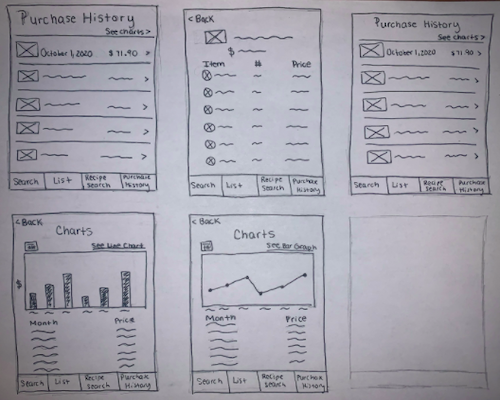 Purchase History
See charts >
October 1, 2020 $71.90 >
>
>
>
>
Search List Recipe Search Purchase History
< Back
$
Item Price
Search List Recipe Search Purchase History
Purchase History
See charts >
October 1, 2020 $71.90 >
>
>
>
>
Search List Recipe Search Purchase History
< Back
Charts
See Line Chart
$
Month Price
Search List Recipe Search Purchase History
< Back
Charts
See Bar Graph
Month Price
Search List Recipe Search Purchase History